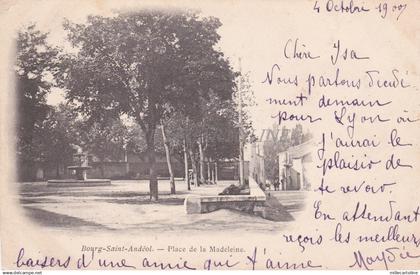 4 Octobre 1900
Chère Isa
Nous partons décidé
ment demain
pour Lyon où
j'aurai le
plaisir de
te revoir.
En attendant
reçois les meilleurs
baisers d'une amie qui t'aime
Bourg-Saint-Andéol. — Place de la Madeleine.